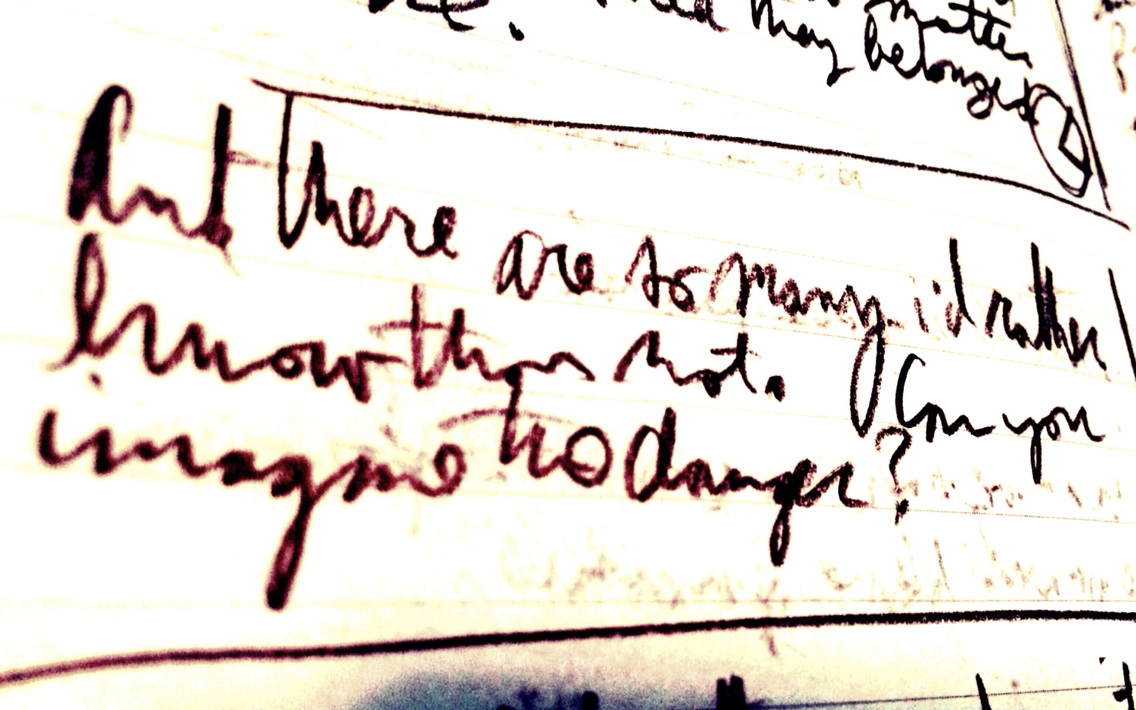 may belonged
And there are so many i'd rather
know than not. Can you
imagine no danger?